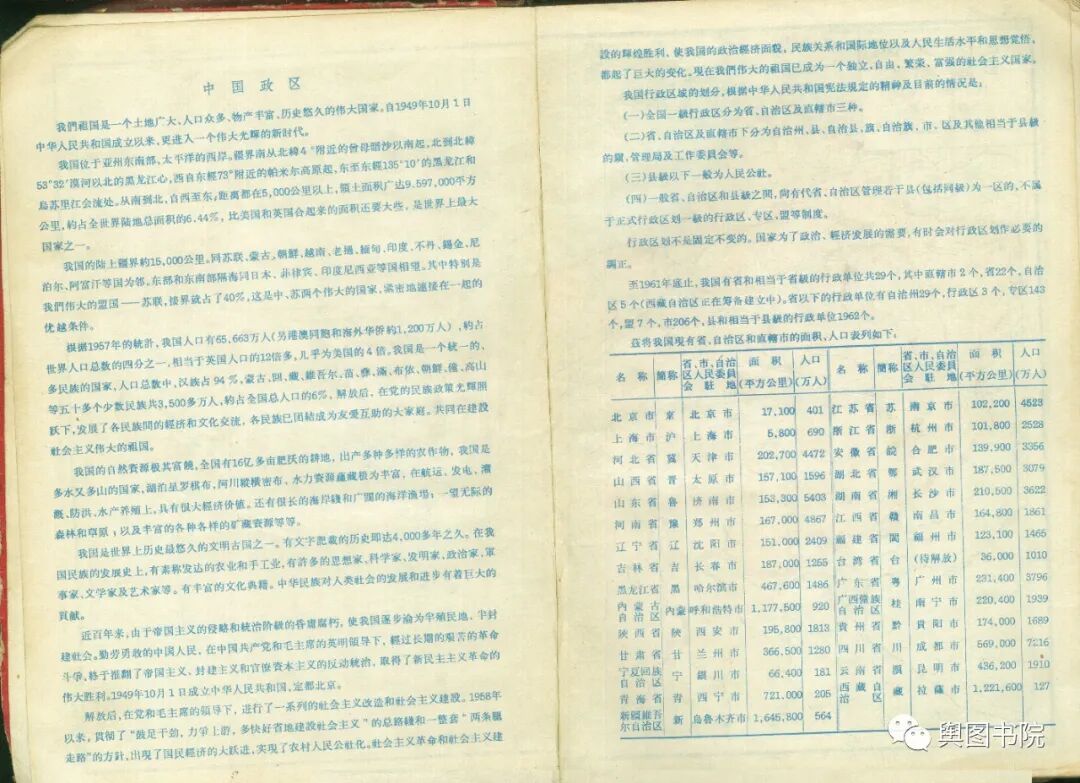 中国政区
我們祖国是一个土地广大、人口众多、物产丰富、历史悠久的伟大国家。自1949年10月1日
中华人民共和国成立以来，更进入一个伟大光輝的新时代。
我国位于亚州东南部、太平洋的西岸。疆界南从北緯4°附近的曾母暗沙以南起，北到北緯
53°32′漠河以北的黑龙江心，西自东經73°附近的帕米尔高原起，东至东經135°10′的黑龙江和
烏苏里江会流处。从南到北，自西至东，距离都在5,000公里以上，領土面积广达9,597,000平方
公里，約占全世界陆地总面积的6.44%，比美国和英国合起来的面积还要大些，是世界上最大
国家之一。
我国的陆上疆界約15,000公里。同苏联、蒙古、朝鲜、越南、老撾、緬甸、印度、不丹、錫金、尼
泊尔、阿富汗等国为邻。东部和东南部隔海同日本、菲律宾、印度尼西亚等国相望。其中特别是
我們伟大的盟国——苏联，接界就占了40%，这是中、苏两个伟大的国家，紧密地連接在一起的
优越条件。
根据1957年的統計，我国人口有65,663万人（另港澳同胞和海外华侨約1,200万人），約占
世界人口总数的四分之一，相当于英国人口的12倍多，几乎为美国的4倍。我国是一个統一的、
多民族的国家，人口总数中，汉族占94%，蒙古、回、藏、維吾尔、苗、彝、滿、布依、朝鲜、僮、高山
等五十多个少数民族共3,500多万人，約占全国总人口的6%，解放后，在党的民族政策光輝照
跃下，发展了各民族間的經济和文化交流，各民族已团結成为友爱互助的大家庭。共同在建設
社会主义伟大的祖国。
我国的自然資源极其富饒，全国有16亿多亩肥沃的耕地，出产多种多样的农作物，我国是
多水又多山的国家，湖泊星罗棋布，河川縱橫密布，水力資源蘊藏极为丰富，在航运、发电、灌
漑、防洪、水产养殖上，具有很大經济价值。还有很长的海岸綫和广闊的海洋漁場；一望无际的
森林和草原；以及丰富的各种各样的矿藏資源等等。
我国是世界上历史最悠久的文明古国之一。有文字記載的历史即达4,000多年之久。在我
国民族的发展史上，有素称发达的农业和手工业，有許多的思想家、科学家、发明家、政治家、軍
事家、文学家及艺术家等。有丰富的文化典籍。中华民族对人类社会的发展和进步有着巨大的
貢献。
近百年来，由于帝国主义的侵略和統治阶級的昏庸腐朽，使我国逐步淪为半殖民地、半封
建社会。勤劳勇敢的中国人民，在中国共产党和毛主席的英明領导下，經过长期的艰苦的革命
斗爭，終于推翻了帝国主义、封建主义和官僚資本主义的反动統治，取得了新民主主义革命的
伟大胜利。1949年10月1日成立中华人民共和国，定都北京。
解放后，在党和毛主席的領导下，进行了一系列的社会主义改造和社会主义建設。1958年
以来，貫彻了“鼓足干劲，力爭上游，多快好省地建設社会主义”的总路綫和一整套“两条腿
走路”的方針，出現了国民經济的大跃进，实現了农村人民公社化。社会主义革命和社会主义建
設的輝煌胜利，使我国的政治經济面貌，民族关系和国际地位以及人民生活水平和思想觉悟，
都起了巨大的变化。現在我們伟大的祖国已成为一个独立、自由、繁荣、富强的社会主义国家。
我国行政区域的划分，根据中华人民共和国宪法規定的精神及目前的情况是：
（一）全国一級行政区分为省、自治区及直轄市三种。
（二）省、自治区及直轄市下分为自治州、县、自治县、旗、自治旗、市、区及其他相当于县級
的鎭、管理局及工作委員会等。
（三）县級以下一般为人民公社。
（四）一般省、自治区和县級之間，尙有代省、自治区管理若干县（包括同級）为一区的，不属
于正式行政区划一級的行政区、专区、盟等制度。
行政区划不是固定不变的。国家为了政治、經济发展的需要，有时会对行政区划作必要的
調正。
至1961年底止，我国有省和相当于省級的行政单位共29个，其中直轄市2个，省22个，自治
区5个（西藏自治区正在筹备建立中）。省以下的行政单位有自治州29个，行政区3个，专区143
个，盟7个，市206个，县和相当于县級的行政单位1962个。
茲将我国現有省、自治区和直轄市的面积，人口表列如下：
名称 簡称 省、市、自治区人民委員会駐地 面积（平方公里） 人口（万人） 名称 簡称 省、市、自治区人民委員会駐地 面积（平方公里） 人口（万人）
北京市 京 北京市 17,100 401 江苏省 苏 南京市 102,200 4523
上海市 沪 上海市 5,800 690 浙江省 浙 杭州市 101,800 2528
河北省 冀 天津市 202,700 4472 安徽省 皖 合肥市 139,900 3356
山西省 晋 太原市 157,100 1596 湖北省 鄂 武汉市 187,500 3079
山东省 鲁 济南市 153,300 5403 湖南省 湘 长沙市 210,500 3622
河南省 豫 郑州市 167,000 4867 江西省 赣 南昌市 164,800 1861
辽宁省 辽 沈阳市 151,000 2409 福建省 閩 福州市 123,100 1465
吉林省 吉 长春市 187,000 1255 台湾省 台 （待解放） 36,000 1010
黑龙江省 黑 哈尔滨市 467,600 1486 广东省 粤 广州市 231,400 3796
内蒙古自治区 内蒙 呼和浩特市 1,177,500 920 广西僮族自治区 桂 南宁市 220,400 1939
陝西省 陝 西安市 195,800 1813 貴州省 黔 貴阳市 174,000 1689
甘肃省 甘 兰州市 366,500 1280 四川省 川 成都市 569,000 7216
宁夏回族自治区 宁 銀川市 66,400 181 云南省 滇 昆明市 436,200 1910
青海省 青 西宁市 721,000 205 西藏自治区 藏 拉薩市 1,221,600 127
新疆維吾尔自治区 新 乌鲁木齐市 1,645,800 564
舆图书院